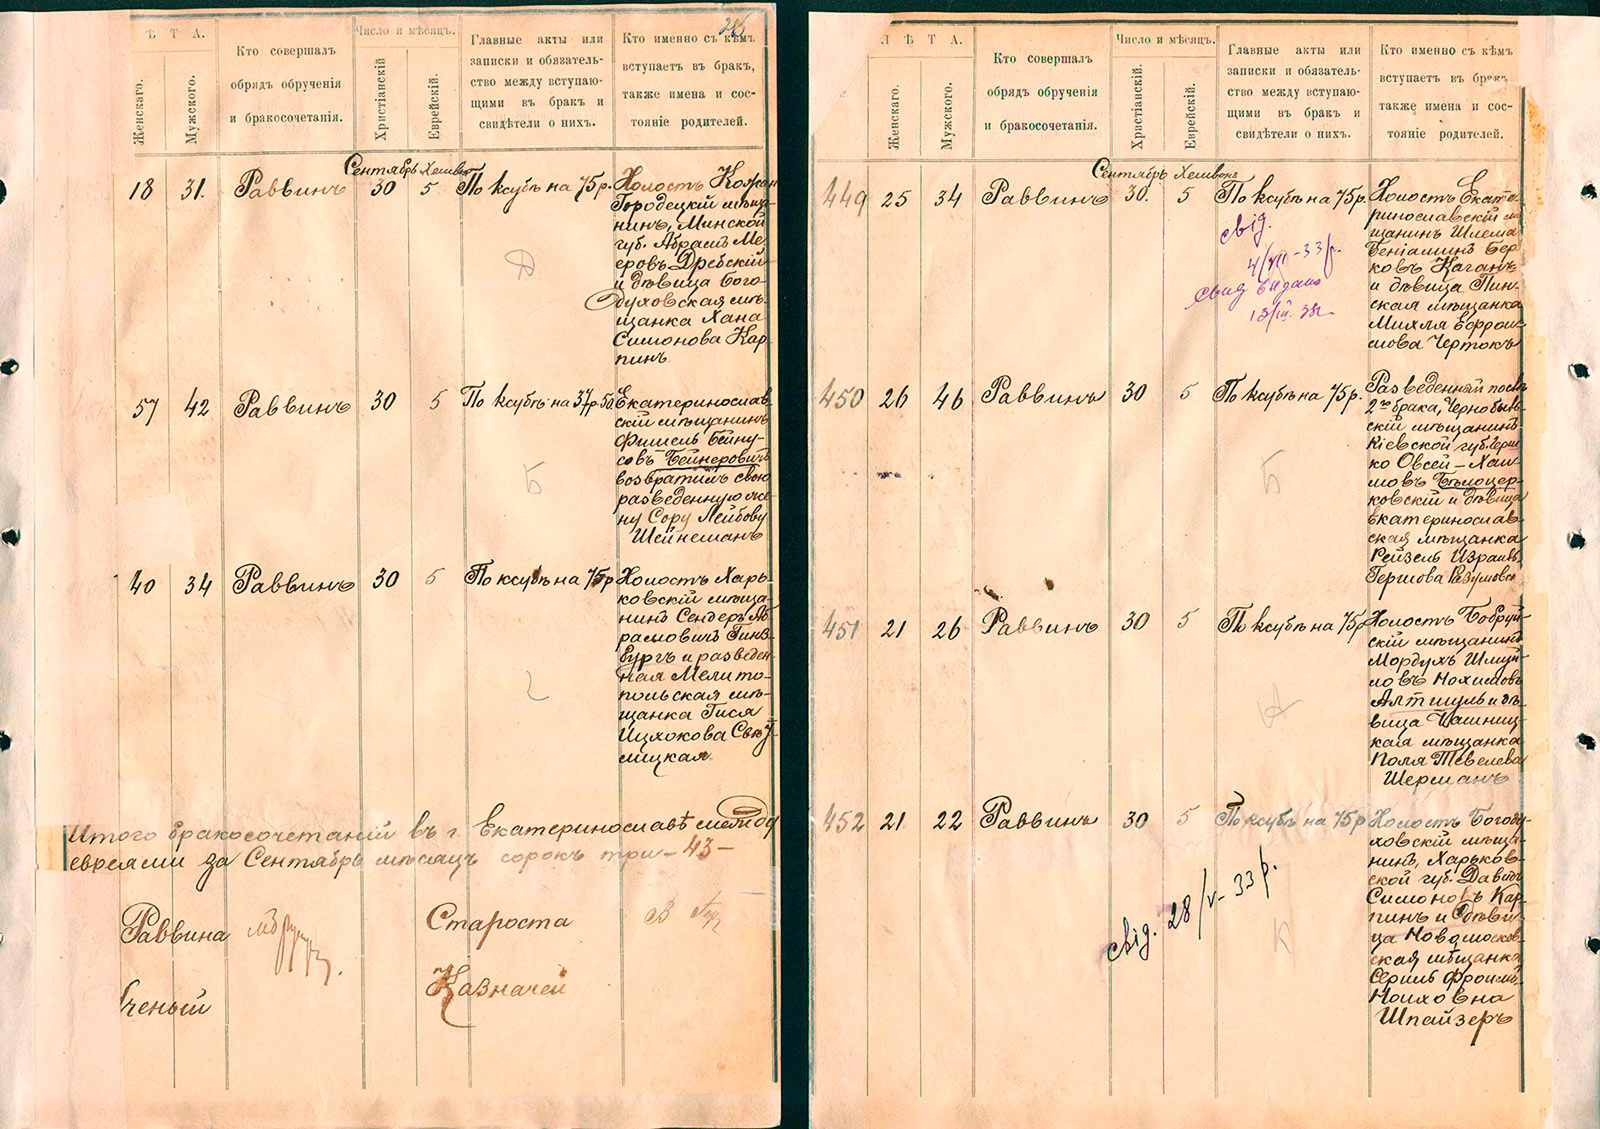 285
Ѣ Т А.
Женскаго.
Мужского.
Кто совершалъ
обрядъ обрученія
и бракосочетанія.
Число и мѣсяцъ.
Христіанскій
Еврейскій.
Главные акты или
записки и обязатель-
ство между вступаю-
щими въ бракъ и
свидѣтели о нихъ.
Кто именно съ кѣмъ
вступаетъ въ бракъ,
также имена и сос-
тояніе родителей.
Сентябрь Хешванъ
18 31. Раввинъ 30 5 По ксубѣ на 75 р.
Холостъ Кожан
Городецкій мѣща-
нинъ, Минской
губ. Абрамъ Ме-
еровъ Дребскій
и дѣвица Бого-
духовская мѣ-
щанка Хана
Симонова Кар-
пинъ
Д
57 42 Раввинъ 30 5 По ксубѣ на 37 р 50
Екатеринослав
скій мѣщанинъ
Фишель Бейну-
совъ Бейнеровичъ
возвратилъ свою
разведенную же-
ну Сору Лейбову
Шейнеманъ
Б
40 34 Раввинъ 30 5 По ксубѣ на 75 р
Холостъ Харь-
ковскій мѣща-
нинъ Сендеръ Аб
рамовичъ Гинз-
бургъ и разведен-
ная Мелито-
польская мѣ-
щанка Гися
Ицхокова
мицкая
Итого бракосочетаній въ г. Екатеринославѣ между
евреями за Сентябрь мѣсяцъ сорокъ три - 43 -
Раввина
Староста
Казначей
ченый
Л Ѣ Т А.
Женскаго.
Мужского.
Кто совершалъ
обрядъ обрученія
и бракосочетанія.
Число и мѣсяцъ.
Христіанскій.
Еврейскій.
Главные акты или
записки и обязатель-
ство между вступаю-
щими въ бракъ и
свидѣтели о нихъ.
Кто именно съ кѣмъ
вступаетъ въ бракъ
также имена и сос-
тояніе родителей.
Сентябрь Хешванъ
449 25 34 Раввинъ 30. 5 По ксубѣ на 75 р.
свід.
4/VII - 33 р.
свид видано
13/III. 38 г.
Холостъ Екате-
ринославскій мѣ
щанинъ Шлема
Беніаминъ Бер
ковъ Каганъ
и дѣвица Пин-
ская мѣщанка
Михля Ефроим-
мова Чертокъ
450 26 46 Раввинъ 30 5 По ксубѣ на 75 р.
Разведенный послѣ
2го брака, Чернобыль-
скій мѣщанинъ
Кіевской губ. Герш
ко Овсей-Хаи-
мовъ Бѣлоцер-
ковскій и дѣвица
Екатеринослав-
ская мѣщанка
Рейзель Израиль
Гершова Разумовск
Б
451 21 26 Раввинъ 30 5 По ксубѣ на 75 р
Холостъ Бобруй-
скій мѣщанинъ
Мордухъ Шмуй-
ловъ Нохимовъ
Алтшуль и дѣ-
вица Чашниц-
кая мѣщанка
Поля Тевелева
Шерманъ
А
452 21 22 Раввинъ 30 5 По ксубѣ на 75 р
свід. 28/V - 33 р.
Холостъ Богоду-
ховскій мѣща-
нинъ, Харьков-
ской губ. Давидъ
Симоновъ Кар-
пинъ и дѣви-
ца Новомосков-
ская мѣщанка
Серль Фроимъ
Ноиховна
Шпайзеръ
К